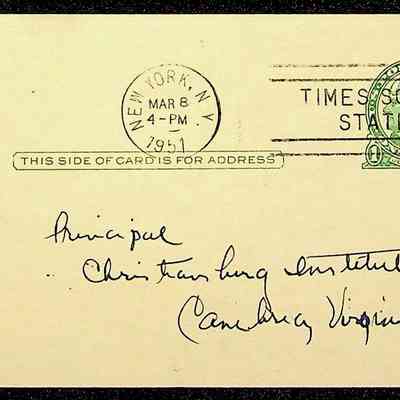 NEW YORK, N.Y.
MAR 8
4-PM
1951
TIMES SQ
STAT
THIS SIDE OF CARD IS FOR ADDRESS
1
Principal
Christiansburg Institut
Cambria, Virginia